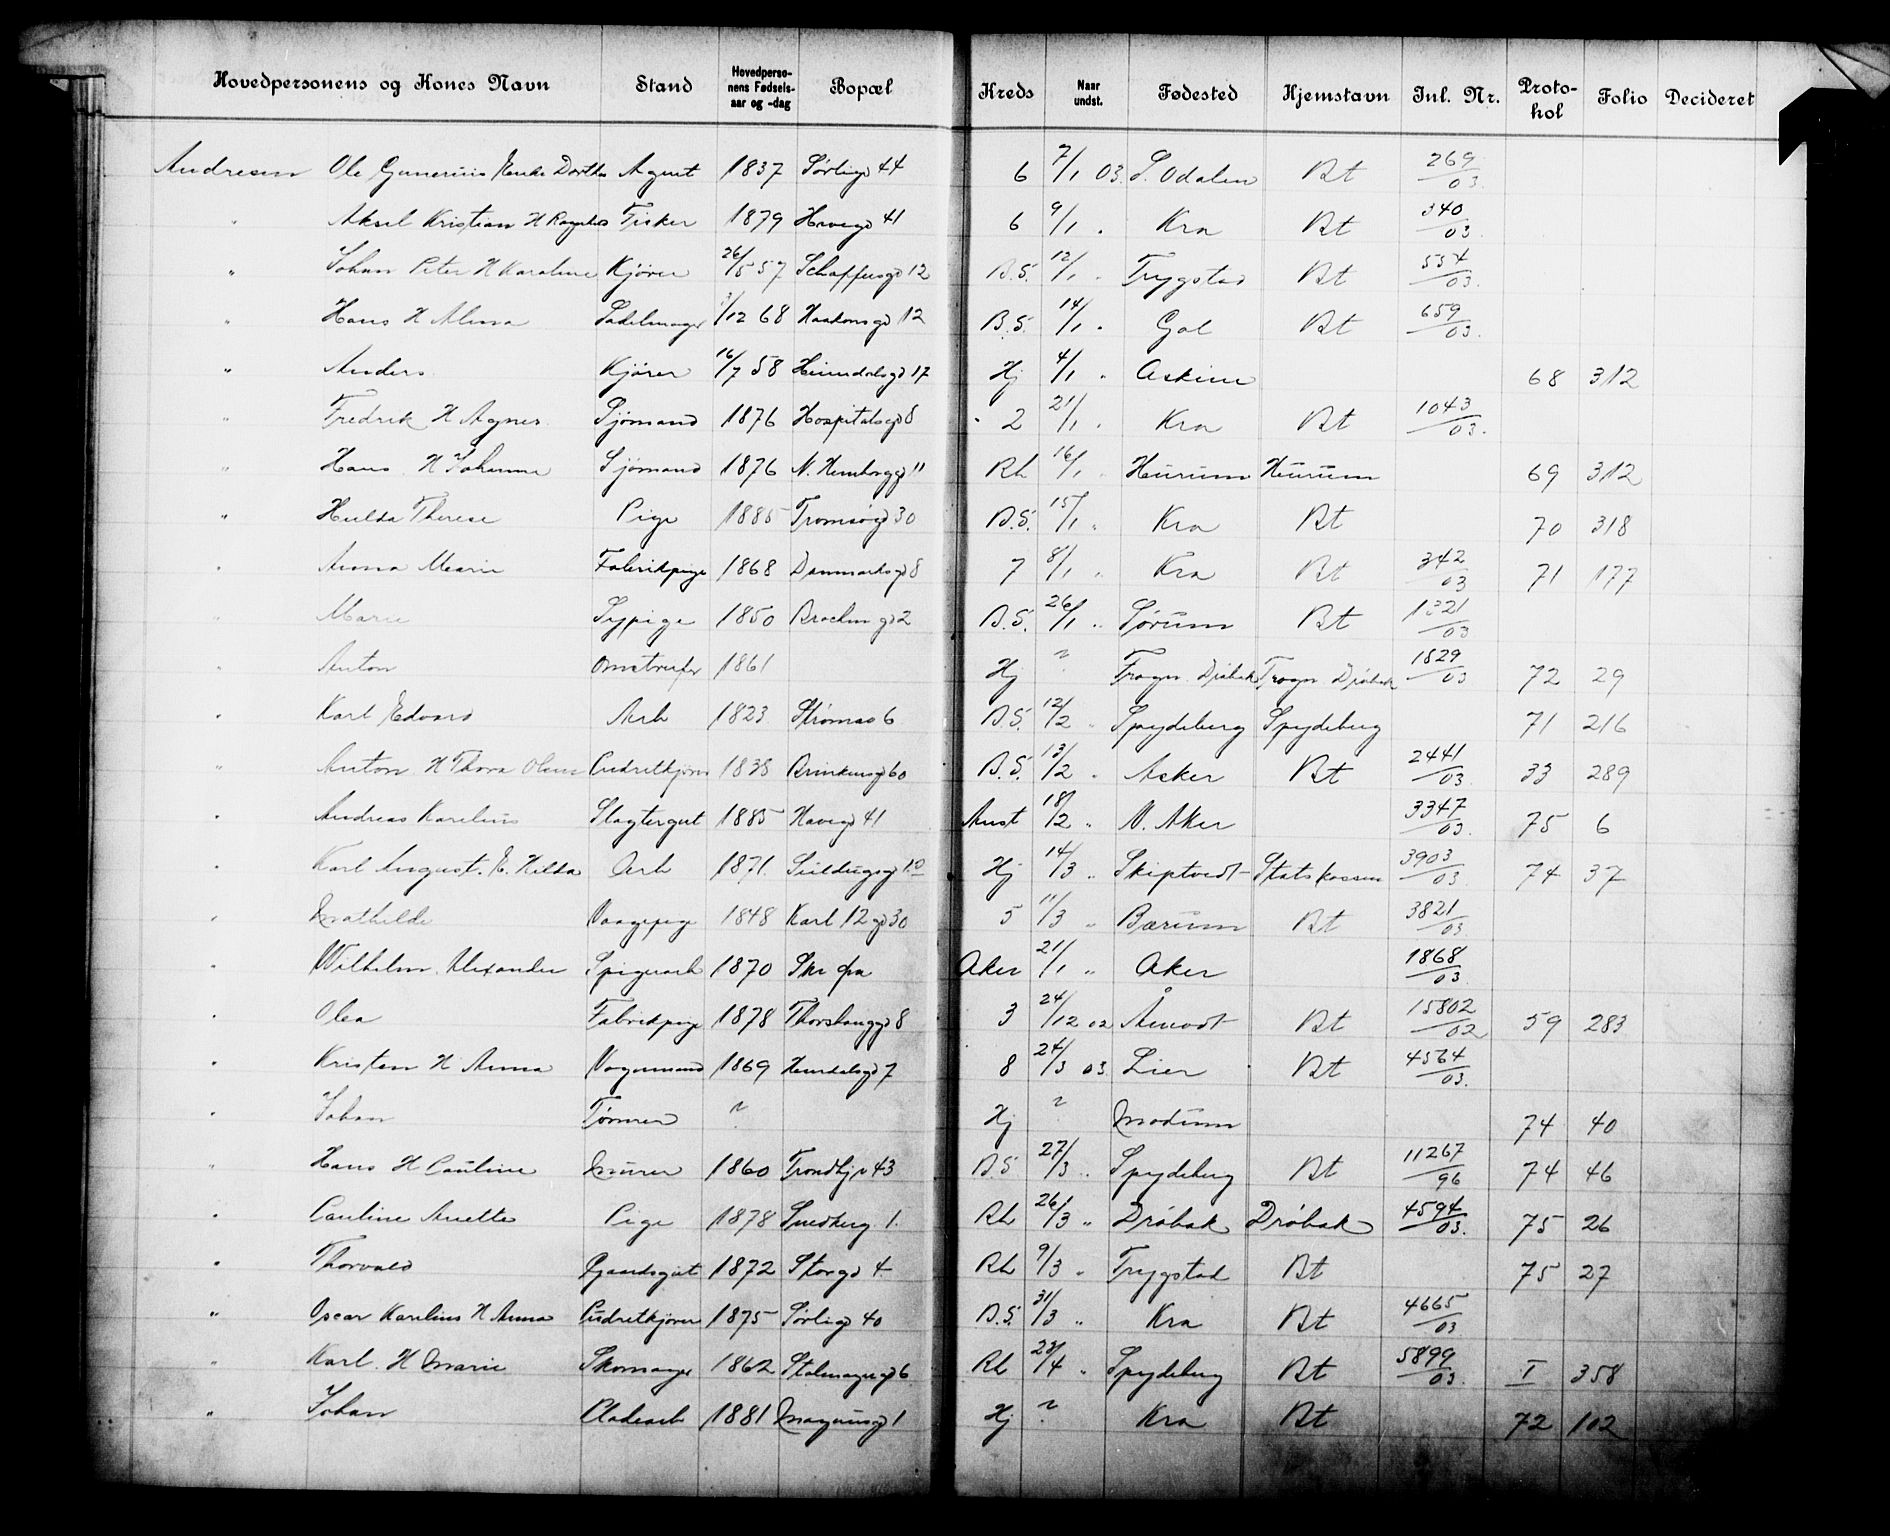 Hovedpersonens og Kones Navn Stand Hovedpersonens Fødselsaar og -dag Bopæl Kreds Naar undst. Fødested Hjemstavn Inl. Nr. Protokol Folio Decideret
Andresen Ole Gunerius Enke Dorthe Agent 1837 Sørligd 44 6 7/1 03. S. Odalen Bt 269/03
" Aksel Kristian H Ragnhild Tisker 1879 Havegd 41 6 9/1 " Kra Bt 340/03
" Johan Peter H Karoline Kjører 26/5 57 Schaffersgd 12 B.S. 12/1 " Trygstad Bt 554/03
" Hans H Alma Sadelmager /12 68 Haakonsgd 12 B.S. 14/1 " Gol Bt 659/03
" Anders Kjører 16/7 58 Heimdalsgd 17 Hj 4/1 " Askim 68 312
" Fredrik H Agnes Sjömand 1876 Hospitalsgd 8 2 21/1 " Kra Bt 1043/03
" Hans H Johanne Sjömand 1876 11 Rh 16/1 " Hurum Hurum 69 312
" Hulda Therese Pige 1885 Tromsøgd 30 B.S. 15/1 " Kra Bt 70 318
" Anna Marie Fabrikpige 1868 Danmarksgd 8 7 8/1 " Kra Bt 342/03 71 177
" Marie Sypige 1850 Brochm gd 2 B.S. 26/1 " Sørum Bt 1321/03
" Anton Omstreifer 1861 Hj ? Frogn Dröbak Frogn Dröbak 1829/03 72 29
" Karl Edvard Arb 1823 Strømsø 6 B.S. 12/2 " Spydeberg Spydeberg 71 216
" Anton H Thora Olina Pudretkjører 1838 Brinkensgd 60 B.S. 13/2 " Asker Bt 2441/03 33 289
" Andreas Karelius Slagtergut 1885 Havegd 41 Anst 18/2 " V. Aker 3347/03 75 6
" Karl August. E. Hilda Arb 1871. 10 Hj 14/3 " Skiptvedt Statskassen 3903/03 74 37
" Mathilde Vaagepige 1848 Karl 12 gd 30 5 11/3 " Bærum Bt 3821/03
" Wilhelm Alexander Spigerarb 1870 Aker 21/1 " Aker 1868/03
" Olea Fabrikpige 1878 Thorshauggd 8 3 24/12 02 Åmodt Bt 15802/02 59 283
" Kristen H Anna Vognmand 1869 Heimdalsgd 7 8 24/3 03 Lier Bt 4564/03
" Johan Tømrer ? Hj ? Modum 74 40
" Hans H Pauline Murer 1860 Trondhjv 43 B.S. 27/3 " Spydeberg Bt 11267/96 74 46
" Pauline Anette Pige 1878 Smedberg 1. Rh 26/3 " Dröbak Dröbak 4594/03. 75 26
" Thorvald Gaardsgut 1872 Storgd 4 Rh 9/3 " Trygstad Bt 75 27
" Oscar Karelius H Anna Pudretkjører 1875 Sørligd 40 B.S. 31/3 " Kra Bt 4665/03
" Karl H Marie Skomager 1862 Stolmagergd 6 Rh 23/4 " Spydeberg Bt 5899/03. I 358
" Johan Pladearb 1881 Magnusgd 1 Hj ? Kra Bt 72 102